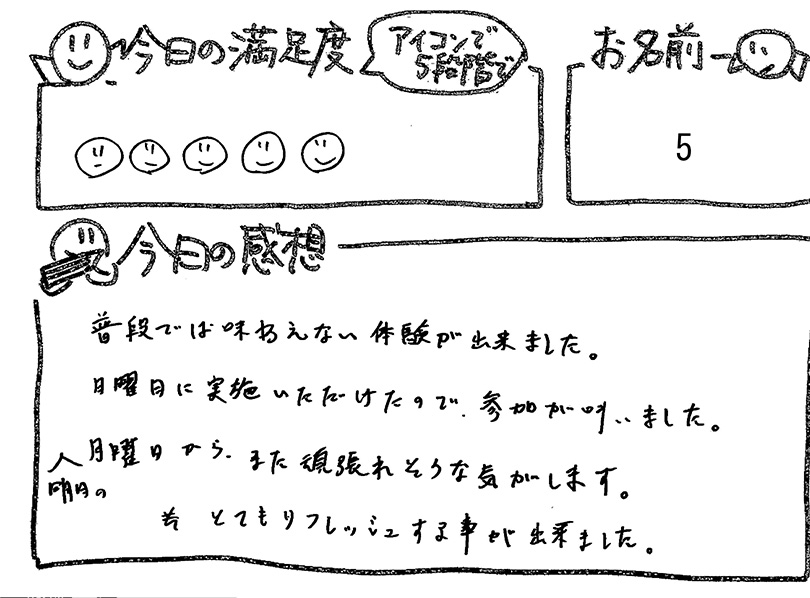 今日の満足度
アイコンで
5段階で
お名前
5
今日の感想
普段では味わえない体験が出来ました。
日曜日に実施いただけたので、参加が叶いました。
月曜日から、また頑張れそうな気がします。
明日の
とてもリフレッシュする事が出来ました。